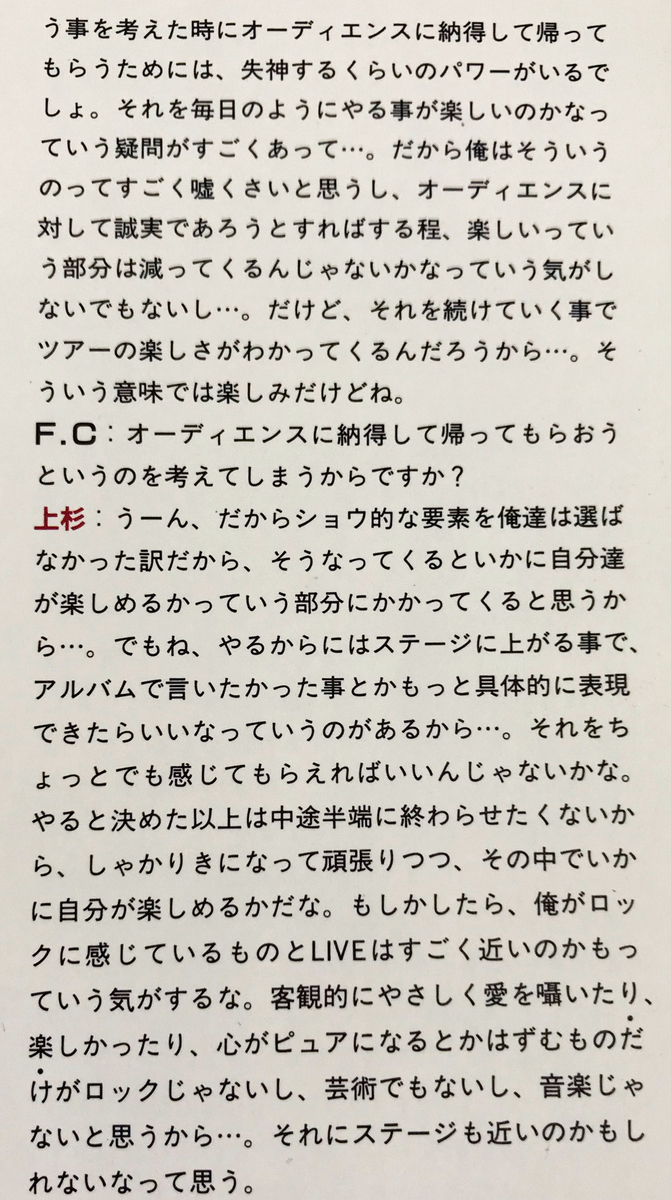 う事を考えた時にオーディエンスに納得して帰って
もらうためには、失神するくらいのパワーがいるで
しょ。それを毎日のようにやる事が楽しいのかなっ
ていう疑問がすごくあって…。だから俺はそういう
のってすごく嘘くさいと思うし、オーディエンスに
対して誠実であろうとすればする程、楽しいってい
う部分は減ってくるんじゃないかなっていう気がし
ないでもないし…。だけど、それを続けていく事で
ツアーの楽しさがわかってくるんだろうから…。そ
ういう意味では楽しみだけどね。
F.C：オーディエンスに納得して帰ってもらおう
というのを考えてしまうからですか？
上杉：うーん、だからショウ的な要素を俺達は選ば
なかった訳だから、そうなってくるといかに自分達
が楽しめるかっていう部分にかかってくると思うか
ら…。でもね、やるからにはステージに上がる事で、
アルバムで言いたかった事とかもっと具体的に表現
できたらいいなっていうのがあるから…。それをち
ょっとでも感じてもらえればいいんじゃないかな。
やると決めた以上は中途半端に終わらせたくないか
ら、しゃかりきになって頑張りつつ、その中でいか
に自分が楽しめるかだな。もしかしたら、俺がロッ
クに感じているものとLIVEはすごく近いのかもっ
ていう気がするな。客観的にやさしく愛を囁いたり、
楽しかったり、心がピュアになるとかはずむものだ
けがロックじゃないし、芸術でもないし、音楽じゃ
ないと思うから…。それにステージも近いのかもし
れないなって思う。